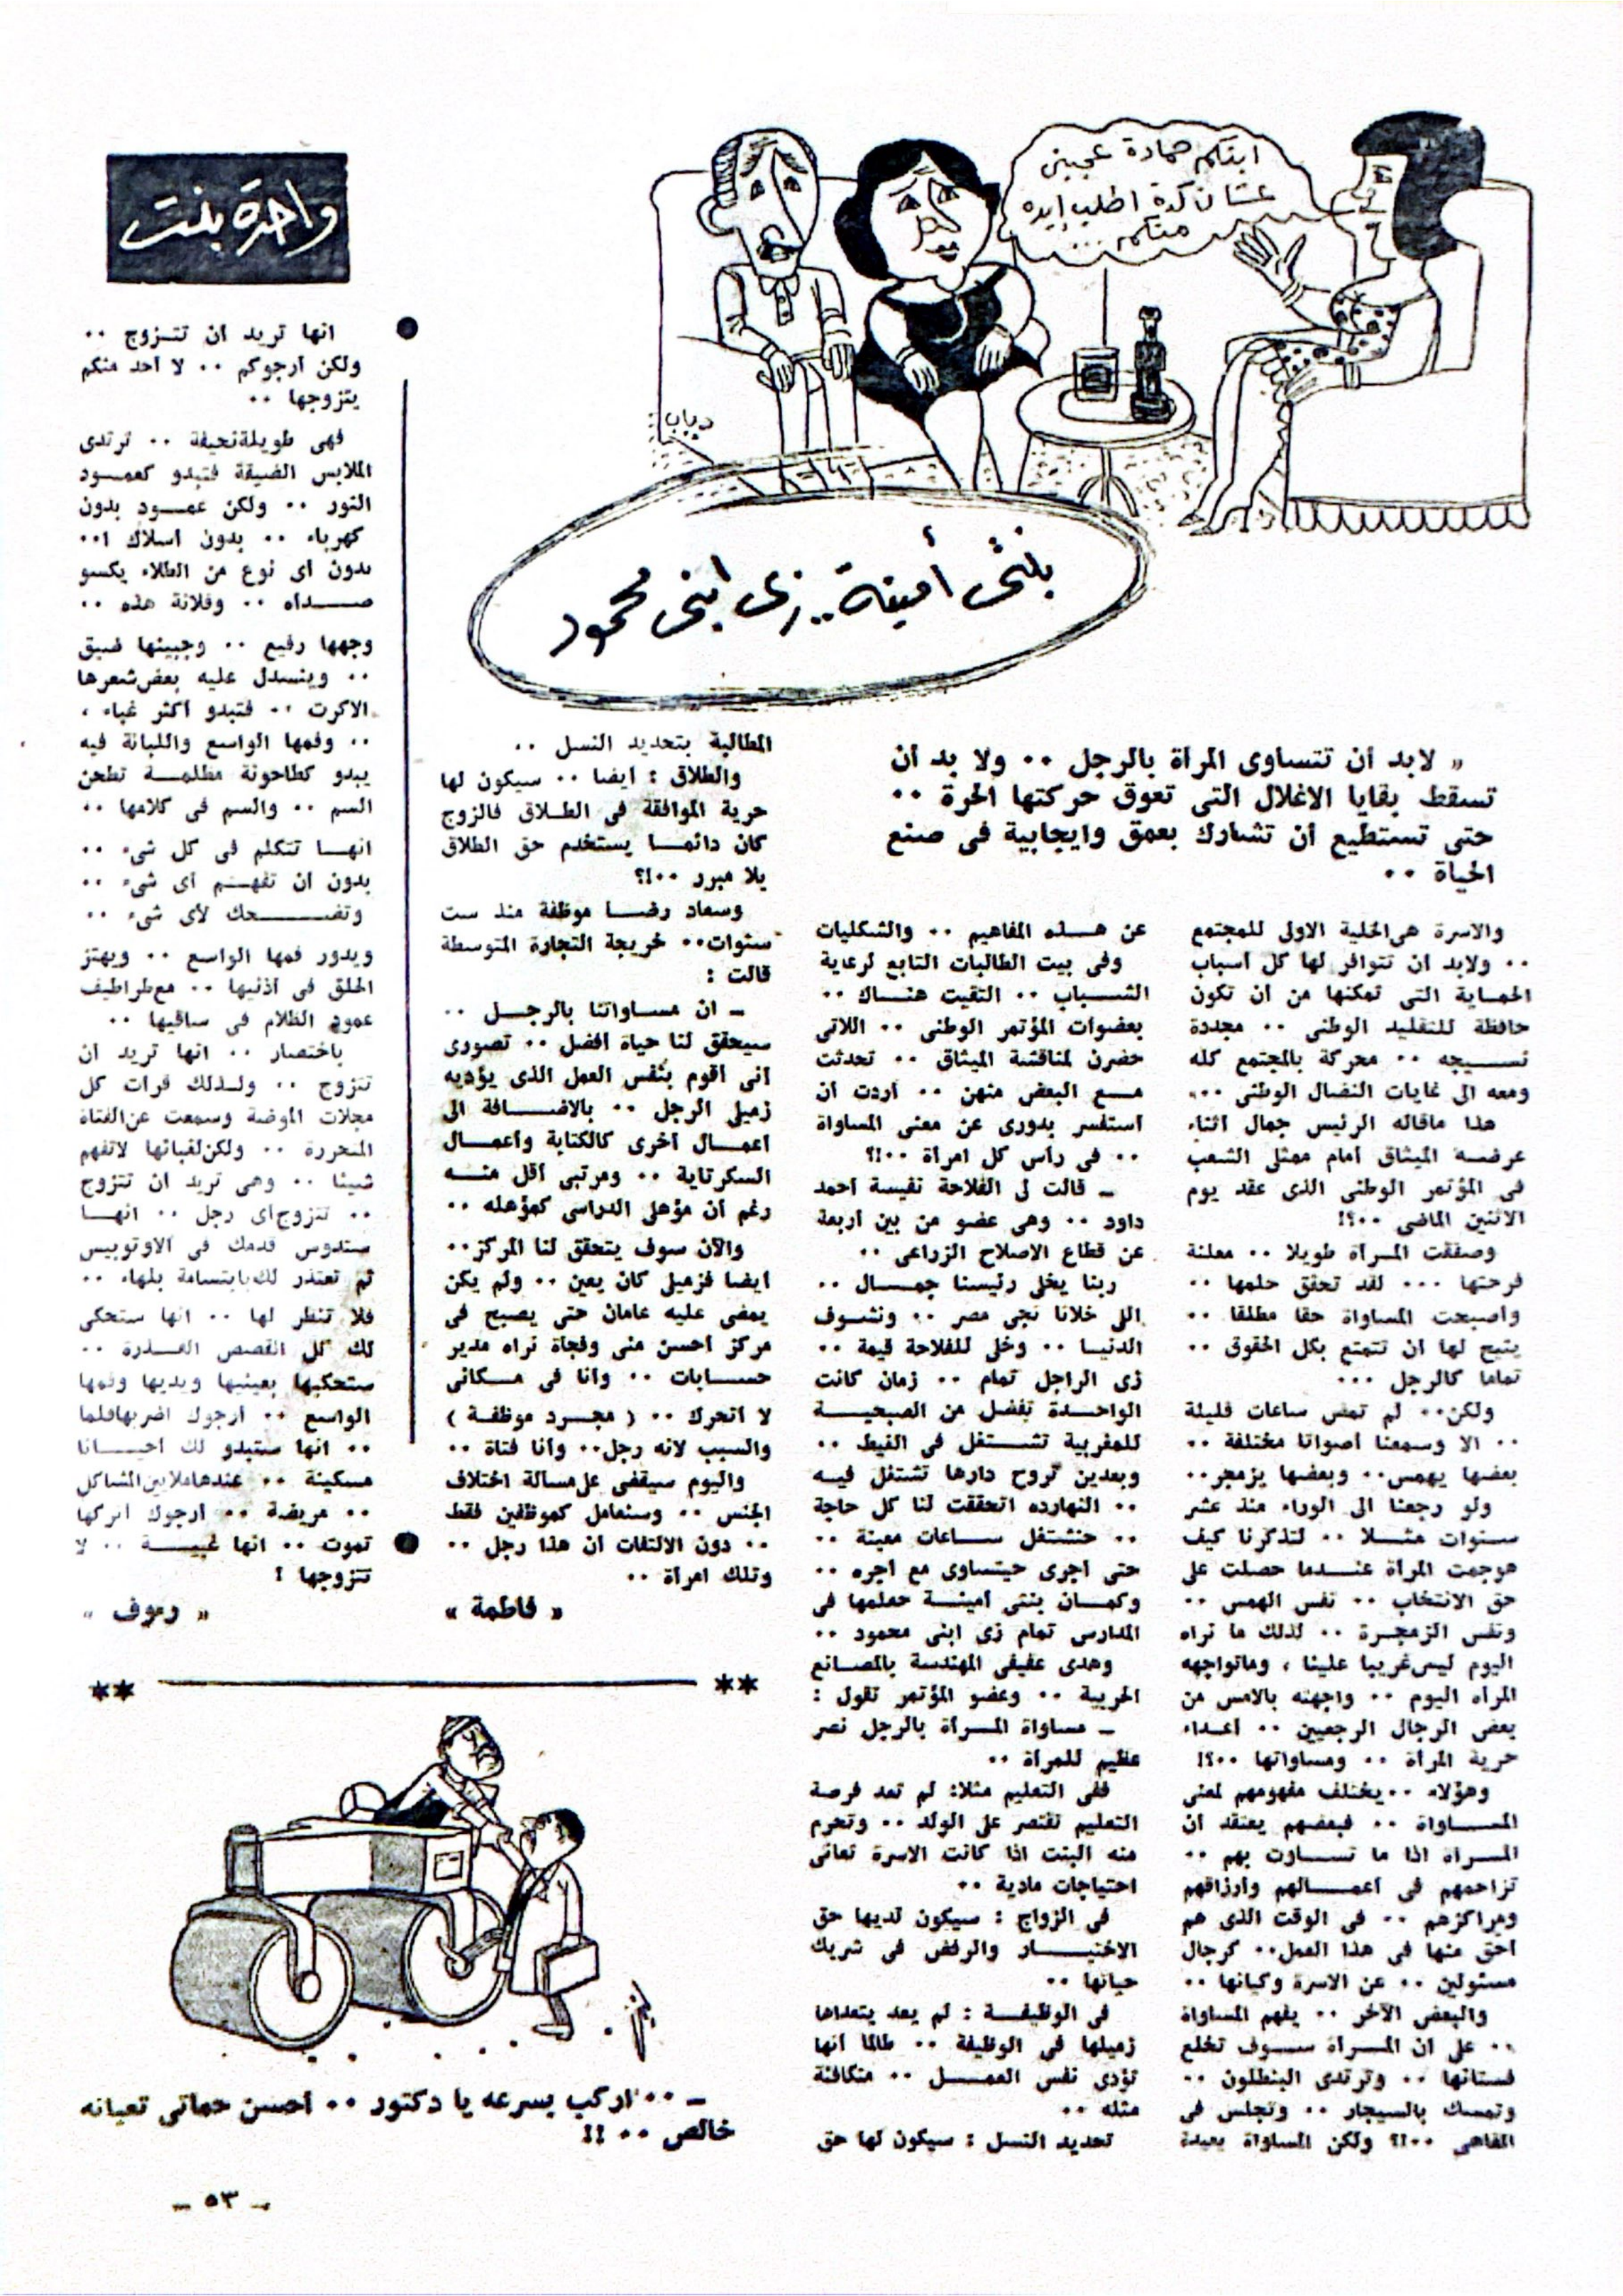 ابنكم حمادة عجبني
عشان كدة اطلب ايده
منكم ...
دياب
بنتى أمينة .. زى ابنى محمود
« لابد أن تتساوى المرأة بالرجل .. ولا بد أن
تسقط بقايا الاغلال التى تعوق حركتها الحرة ..
حتى تستطيع أن تشارك بعمق وايجابية فى صنع
الحياة ..
والاسرة هى الخلية الاولى للمجتمع
.. ولابد أن تتوافر لها كل أسباب
الحماية التى تمكنها من أن تكون
حافظة للتقليد الوطنى .. مجددة
نسيجه .. محركة بالمجتمع كله
ومعه الى غايات النضال الوطنى ..»
هذا ماقاله الرئيس جمال أثناء
عرضه الميثاق أمام ممثلى الشعب
فى المؤتمر الوطنى الذى عقد يوم
الاثنين الماضى ..؟!
وصفقت المرأة طويلا .. معلنة
فرحتها ... لقد تحقق حلمها ..
وأصبحت المساواة حقا مطلقا ..
يتيح لها أن تتمتع بكل الحقوق ..
تماما كالرجل ...
ولكن.. لم تمض ساعات قليلة
.. الا وسمعنا أصواتا مختلفة ..
بعضها يهمس.. وبعضها يزمجر..
ولو رجعنا الى الوراء منذ عشر
سنوات مثلا .. لتذكرنا كيف
هوجمت المرأة عندما حصلت على
حق الانتخاب .. نفس الهمس ..
ونفس الزمجرة .. لذلك ما نراه
اليوم ليس غريبا علينا ، وماتواجهه
المرأه اليوم .. واجهته بالامس من
بعض الرجال الرجعيين .. أعداء
حرية المرأة .. ومساواتها ..؟!
وهؤلاء .. يختلف مفهومهم لمعنى
المساواة .. فبعضهم يعتقد أن
المرأة اذا ما تساوت بهم ..
تزاحمهم فى أعمالهم وأرزاقهم
ومراكزهم .. فى الوقت الذى هم
أحق منها فى هذا العمل.. كرجال
مسئولين .. عن الاسرة وكيانها ..
والبعض الآخر .. يفهم المساواة
.. على ان المرأة سوف تخلع
فستانها .. وترتدى البنطلون ..
وتمسك بالسيجار .. وتجلس فى
المقاهى ..!؟ ولكن المساواة بعيدة
عن هذه المفاهيم .. والشكليات
وفى بيت الطالبات التابع لرعاية
الشباب .. التقيت هناك ..
بعضوات المؤتمر الوطنى .. اللاتى
حضرن لمناقشة الميثاق .. تحدثت
مع البعض منهن .. أردت أن
أستفسر بدورى عن معنى المساواة
.. فى رأس كل امرأة ..!؟
ـ قالت لى الفلاحة نفيسة أحمد
داود .. وهى عضو من بين أربعة
عن قطاع الاصلاح الزراعى ..
ربنا يخلى رئيسنا جمال ..
اللى خلانا نجى مصر .. ونشوف
الدنيا .. وخلى للفلاحة قيمة ..
زى الراجل تمام .. زمان كانت
الواحدة تفضل من الصبحية
للمغربية تشتغل فى الغيط ..
وبعدين تروح دارها تشتغل فيه
.. النهارده اتحققت لنا كل حاجة
.. حنشتغل ساعات معينة ..
حتى أجرى حيتساوى مع أجره ..
وكمان بنتى أمينة حعلمها فى
المدارس تمام زى ابنى محمود ..
وهدى عفيفى المهندسة بالمصانع
الحربية .. وعضو المؤتمر تقول :
ـ مساواة المرأة بالرجل نصر
عظيم للمرأة ..
ففى التعليم مثلا: لم تعد فرصة
التعليم تقتصر على الولد .. وتحرم
منه البنت اذا كانت الاسرة تعانى
احتياجات مادية ..
فى الزواج : سيكون لديها حق
الاختيار والرفض فى شريك
حياتها ..
فى الوظيفة : لم يعد يتعداها
زميلها فى الوظيفة .. طالما أنها
تؤدى نفس العمل .. متكافئة
مثله ..
تحديد النسل : سيكون لها حق
المطالبة بتحديد النسل ..
والطلاق : أيضا .. سيكون لها
حرية الموافقة فى الطلاق فالزوج
كان دائما يستخدم حق الطلاق
بلا مبرر ..!؟
وسعاد رضا موظفة منذ ست
سنوات.. خريجة التجارة المتوسطة
قالت :
ـ ان مساواتنا بالرجل ..
سيحقق لنا حياة أفضل .. تصورى
أنى أقوم بنفس العمل الذى يؤديه
زميلى الرجل .. بالاضافة الى
أعمال أخرى كالكتابة وأعمال
السكرتاية .. ومرتبى أقل منه
رغم أن مؤهلى الدراسى كمؤهله ..
والآن سوف يتحقق لنا المركز..
أيضا فزميلى كان يعين .. ولم يكن
يمضى عليه عامان حتى يصبح فى
مركز أحسن منى وفجأة نراه مدير
حسابات .. وأنا فى مكانى
لا أتحرك .. ( مجرد موظفة )
والسبب لانه رجل.. وأنا فتاة ..
واليوم سيقضى على مسألة اختلاف
الجنس .. وسنعامل كموظفين فقط
.. دون الالتفات ان هذا رجل ..
وتلك امرأة ..
« فاطمة »
واحدة بنت
انها تريد أن تتزوج ..
ولكن أرجوكم .. لا أحد منكم
يتزوجها ..
فهى طويلة نحيفة .. ترتدى
الملابس الضيقة فتبدو كعمود
النور .. ولكن عمود بدون
كهرباء .. بدون أسلاك !..
بدون أى نوع من الطلاء يكسو
صدأه .. وفلانة هذه ..
وجهها رفيع .. وجبينها ضيق
.. وينسدل عليه بعض شعرها
الاكرت .. فتبدو أكثر غباء ،
.. وفمها الواسع واللبانة فيه
يبدو كطاحونة مظلمة تطحن
السم .. والسم فى كلامها ..
انها تتكلم فى كل شىء ..
بدون أن تفهم أى شىء ..
وتضحك لأى شىء ..
ويدور فمها الواسع .. ويهتز
الحلق فى أذنيها .. مع طراطيف
عمود الظلام فى ساقيها ..
باختصار .. انها تريد أن
تتزوج .. ولذلك قرأت كل
مجلات الموضة وسمعت عن الفتاة
المتحررة .. ولكن لغبائها لاتفهم
شيئا .. وهى تريد أن تتزوج
.. تتزوج أى رجل .. انها
ستدوس قدمك فى الاوتوبيس
ثم تعتذر لك بابتسامة بلهاء ..
فلا تنظر لها .. انها ستحكى
لك كل القصص القذرة ..
ستحكيها بعينيها ويديها وفمها
الواسع .. أرجوك اضربها قلما
.. انها ستبدو لك أحيانا
مسكينة .. عندها ملايين المشاكل
.. مريضة .. أرجوك اتركها
تموت .. انها غبية .. لا
تتزوجها !
« رءوف »
** **
ـ .. اركب بسرعه يا دكتور .. أحسن حماتى تعبانه
خالص .. !!
ـ ٥٣ ـ